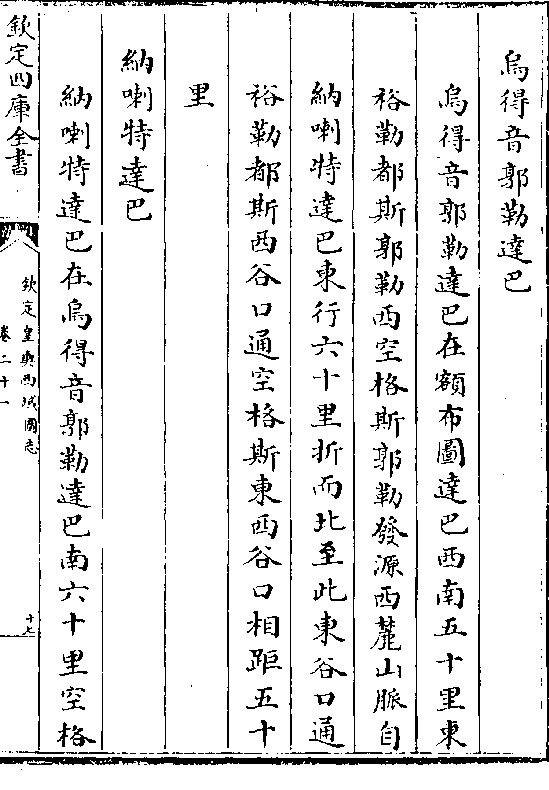 烏得音郭勒達巴
烏得音郭勒達巴在額布圖達巴西南五十里東
裕勒都斯郭勒西空格斯郭勒發源西麓山脈自
納喇特達巴東行六十里折而北至此東谷口通
裕勒都斯西谷口通空格斯東西谷口相距五十
里
納喇特達巴
納喇特達巴在烏得音郭勒達巴南六十里空格
欽定四庫全書
欽定皇輿西域圖志
卷二十一
十七